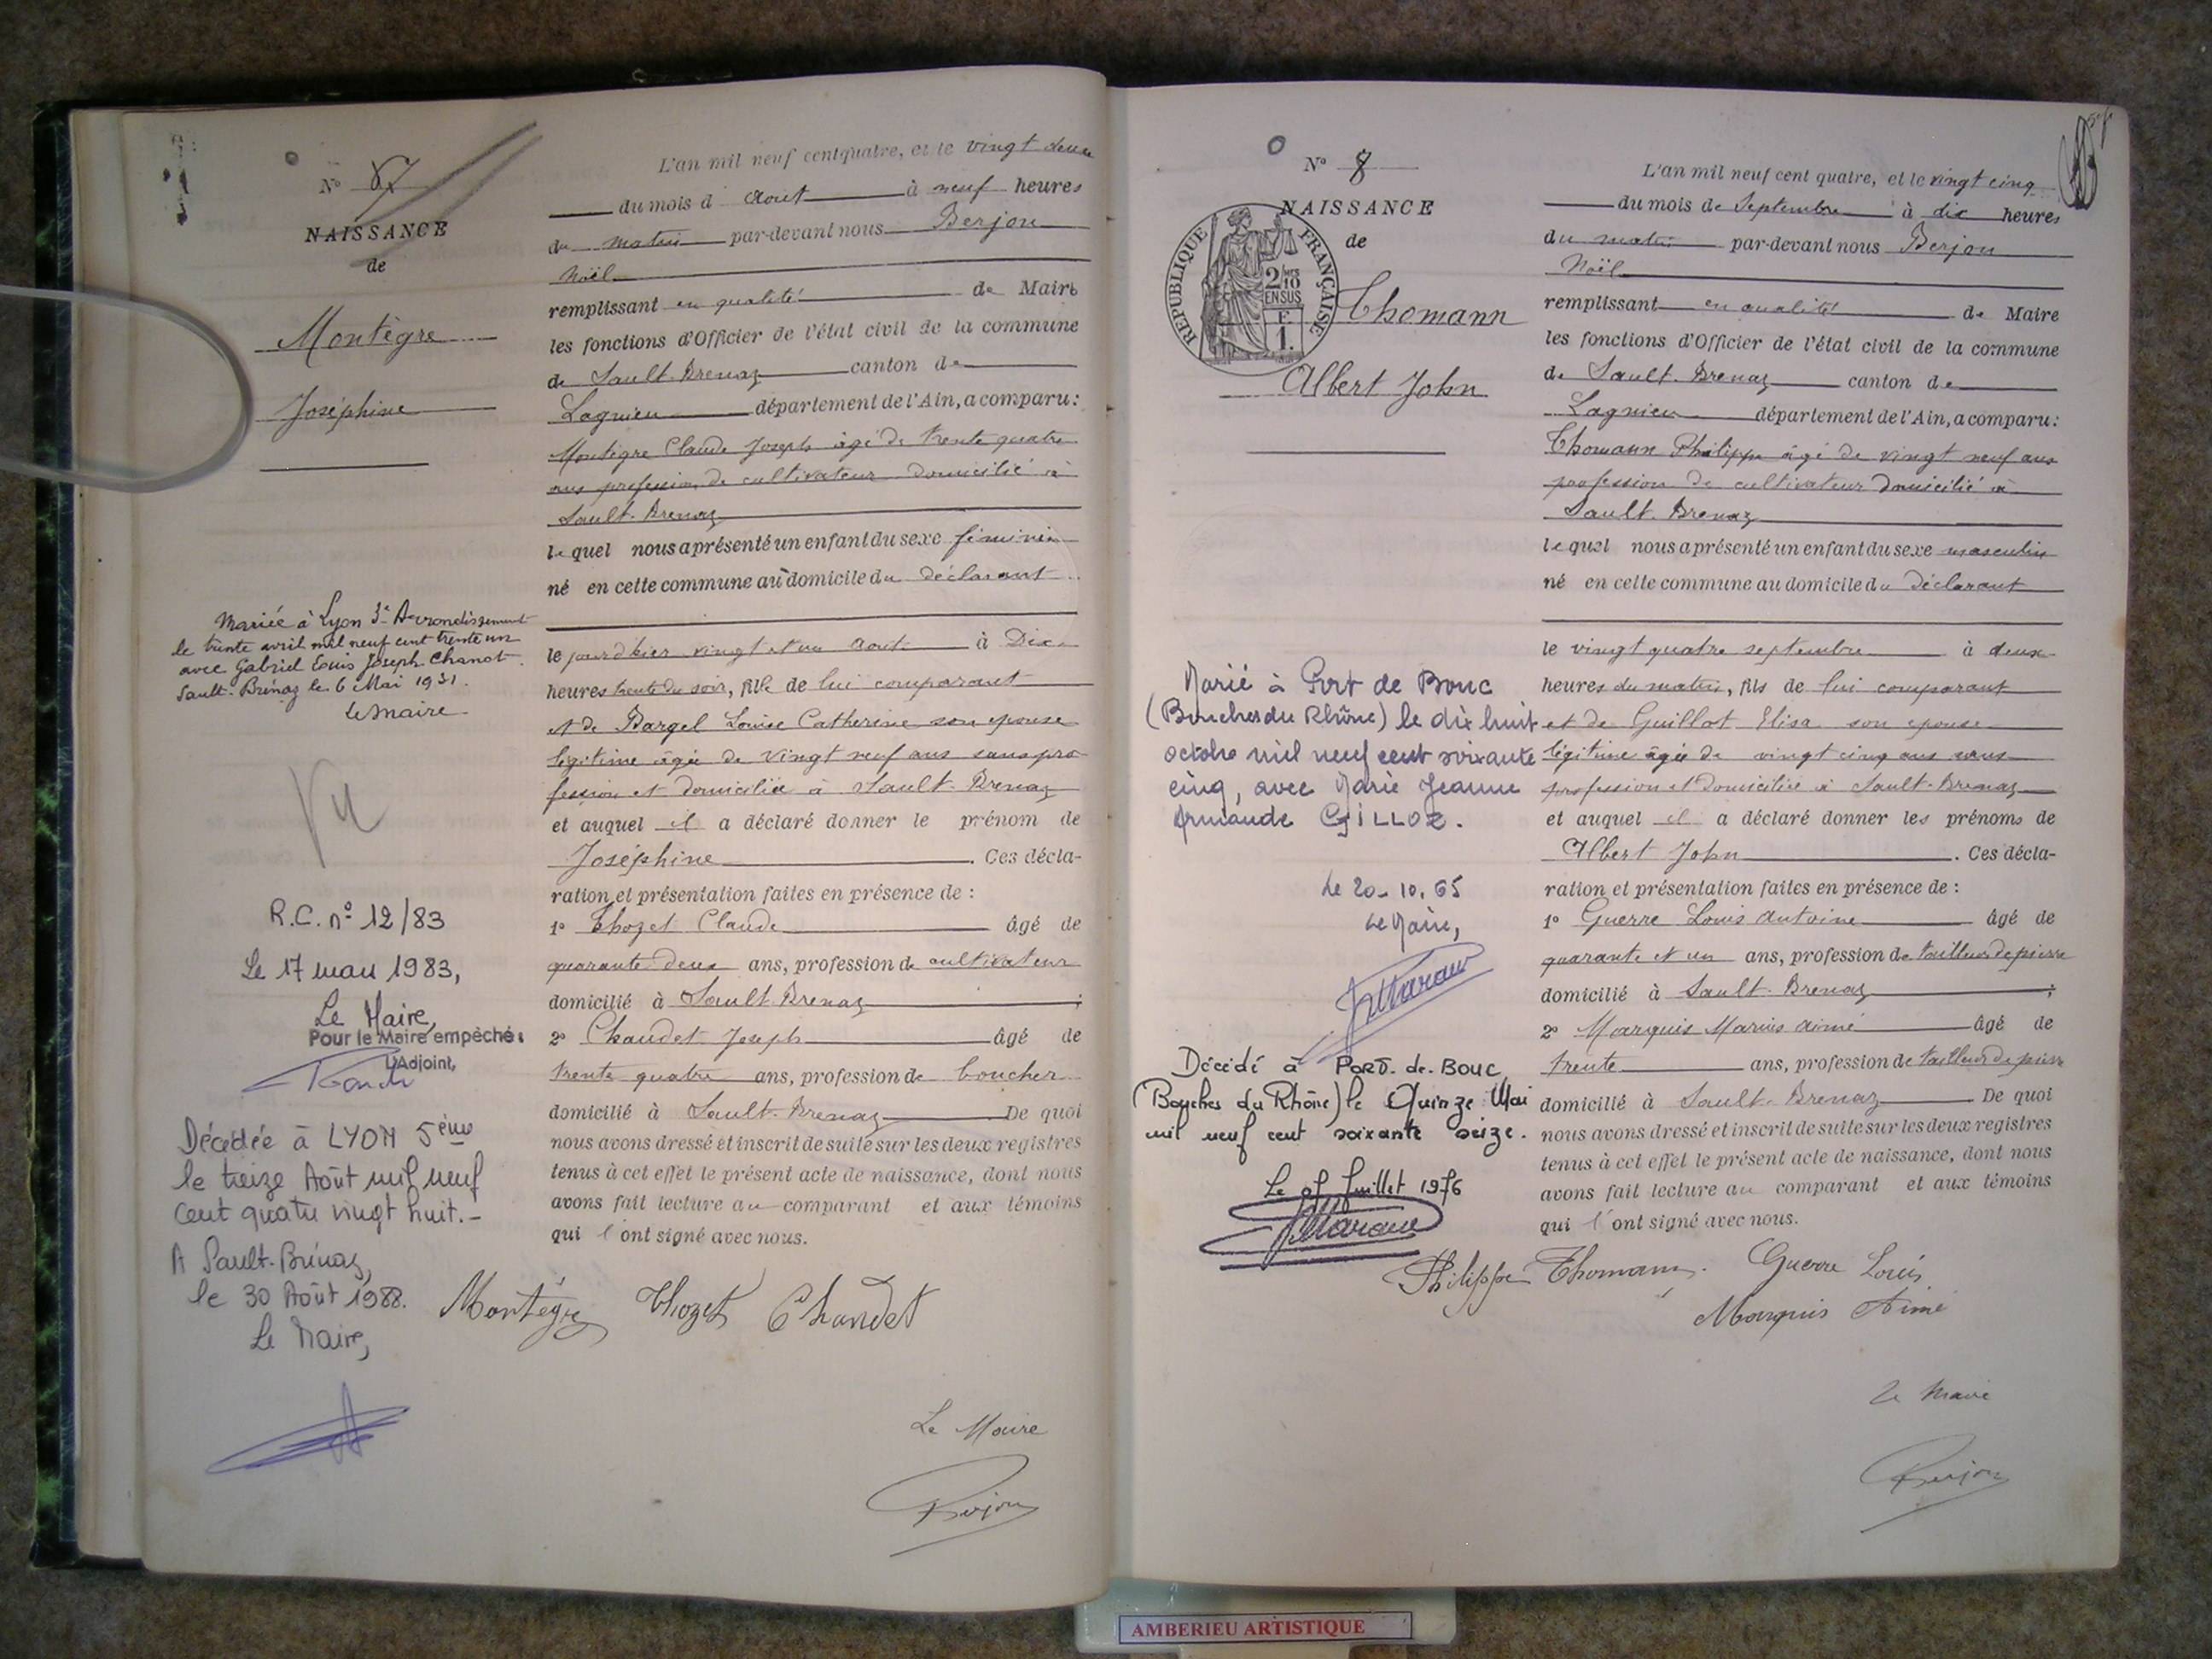 N° 7
NAISSANCE
de
Montègre
Joséphine
Mariée à Lyon 3e Arrondissement
le trente avril mil neuf cent trente un
avec Gabriel Louis Joseph Chanot.
Sault-Brénaz le 6 Mai 1931.
Le Maire
Vu
R.C. n° 12/83
Le 17 mars 1983,
Le Maire,
Pour le Maire empêché:
L'Adjoint,
Décédée à LYON 5ème
le treize Août mil neuf
cent quatre vingt huit.-
A Sault-Brénaz,
le 30 Août 1988.
Le Maire,
L'an mil neuf cent quatre, et le vingt deux
du mois d' Aout à neuf heures
du matin par-devant nous Berjon
Noël
remplissant en qualité de Maire
les fonctions d'Officier de l'état civil de la commune
de Sault-Brenaz canton de
Lagnieu département de l'Ain, a comparu:
Montègre Claude Joseph âgé de trente quatre
ans profession de cultivateur domicilié à
Sault-Brenaz
lequel nous a présenté un enfant du sexe féminin
né en cette commune au domicile du déclarant
le jour d'hier vingt et un Aout à Dix
heures trente du soir, fille de lui comparant
et de Bargel Louise Catherine son epouse
légitime âgée de vingt neuf ans sans pro-
fession et domiciliée à Sault-Brenaz
et auquel il a déclaré donner le prénom de
Joséphine. Ces décla-
ration et présentation faites en présence de :
1° Thozet Claude âgé de
quarante deux ans, profession de cultivateur
domicilié à Sault-Brenaz ;
2° Chaudet Joseph âgé de
trente quatre ans, profession de boucher
domicilié à Sault-Brenaz De quoi
nous avons dressé et inscrit de suite sur les deux registres
tenus à cet effet le présent acte de naissance, dont nous
avons fait lecture au comparant et aux témoins
qui l'ont signé avec nous.
Montègre Thozet Chaudet
Le Maire
Berjon
N° 8
NAISSANCE
de
RÉPUBLIQUE FRANÇAISE
2/10
EN SUS
F.
1.
Thomann
Albert John
Marié à Port de Bouc
(Bouches du Rhône) le dix huit
octobre mil neuf cent soixante
cinq, avec Marie Jeanne
Armande GILLOZ.
Le 20-10.65
Le Maire,
Décédé à PORT-de-BOUC
(Bouches du Rhône) le Quinze Mai
mil neuf cent soixante seize.
Juillet 1976
L'an mil neuf cent quatre, et le vingt cinq
du mois de Septembre à dix heures
du matin par-devant nous Berjon
Noël
remplissant en qualité de Maire
les fonctions d'Officier de l'état civil de la commune
de Sault-Brenaz canton de
Lagnieu département de l'Ain, a comparu:
Thomann Philippe âgé de vingt neuf ans
profession de cultivateur domicilié à
Sault-Brenaz
lequel nous a présenté un enfant du sexe masculin
né en cette commune au domicile du déclarant
le vingt quatre septembre à deux
heures du matin, fils de lui comparant
et de Guillot Elisa son epouse
légitime âgée de vingt cinq ans sans
profession et domiciliée à Sault-Brenaz
et auquel il a déclaré donner les prénoms de
Albert John. Ces décla-
ration et présentation faites en présence de :
1° Guerre Louis Antoine âgé de
quarante et un ans, profession de tailleur de pierre
domicilié à Sault-Brenaz ;
2° Marquis Marius Aimé âgé de
trente ans, profession de tailleur de pierre
domicilié à Sault-Brenaz De quoi
nous avons dressé et inscrit de suite sur les deux registres
tenus à cet effet le présent acte de naissance, dont nous
avons fait lecture au comparant et aux témoins
qui l'ont signé avec nous.
Philippe Thomann. Guerre Louis
Marquis Aimé
Le Maire
Berjon
AMBERIEU ARTISTIQUE